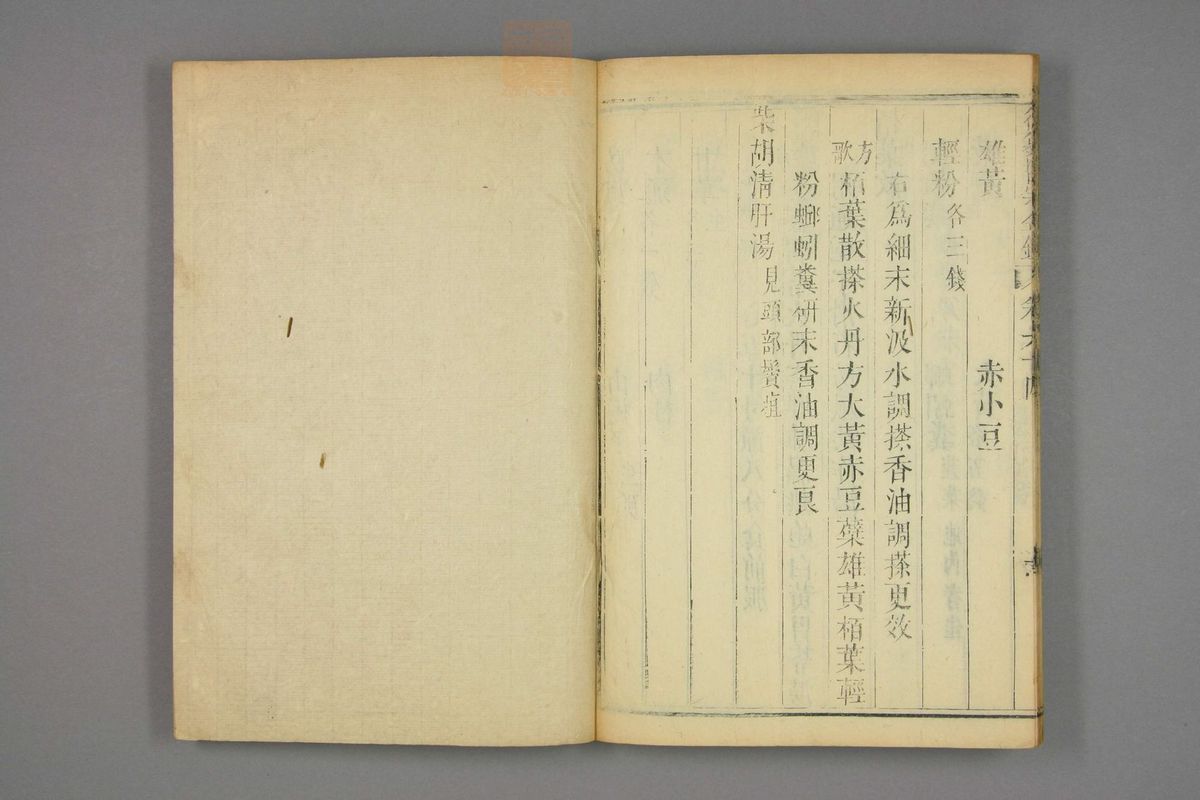 雄黃 赤小豆
輕粉各三錢
右爲細末新汲水調搽香油調搽更效
方歌 栢葉散搽火丹方大黃赤豆藥雄黃栢葉輕
粉螂蚓糞研末香油調更良
柴胡清肝湯見頭部鬢疽
卷六十四